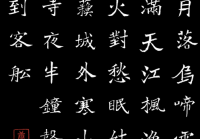 月落烏啼
滿天江楓
火對愁眠
蘇城外寒
寺夜半鐘
到客船